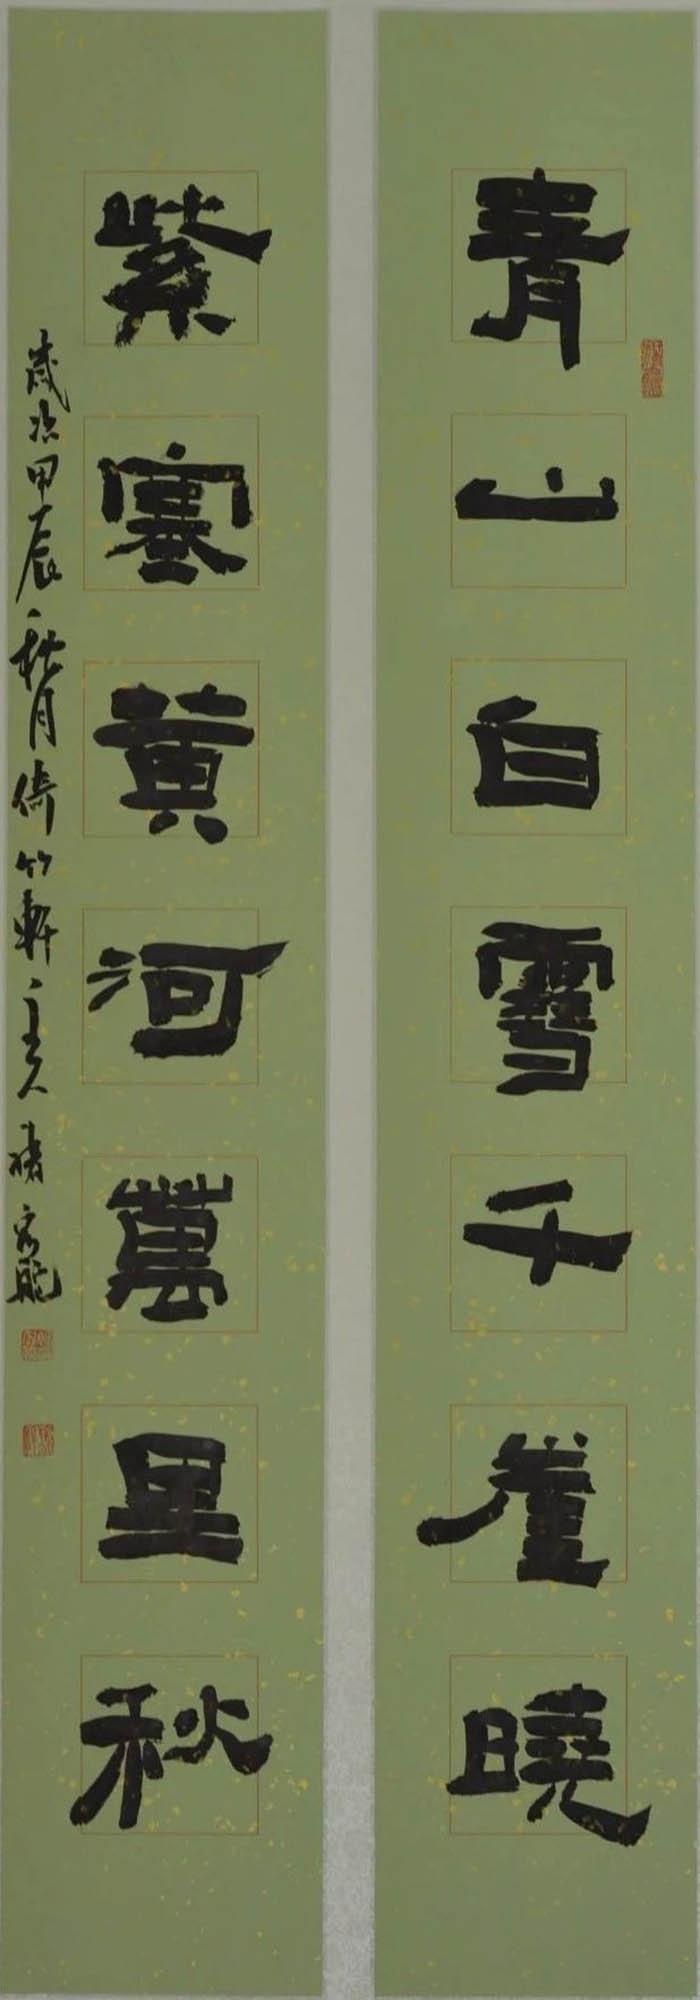 青山白雪千崖曉
紫塞黃河萬里秋
歲次甲辰秋月倚竹軒主人